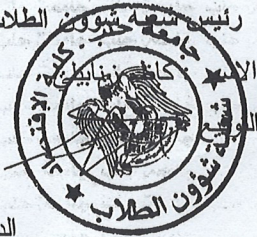 رئيس شعبة شؤون الطلاب
الاسم: كاظم زنابيلي
التوقيع
جامعة حلب - كلية الاقتصاد
شعبة شؤون الطلاب